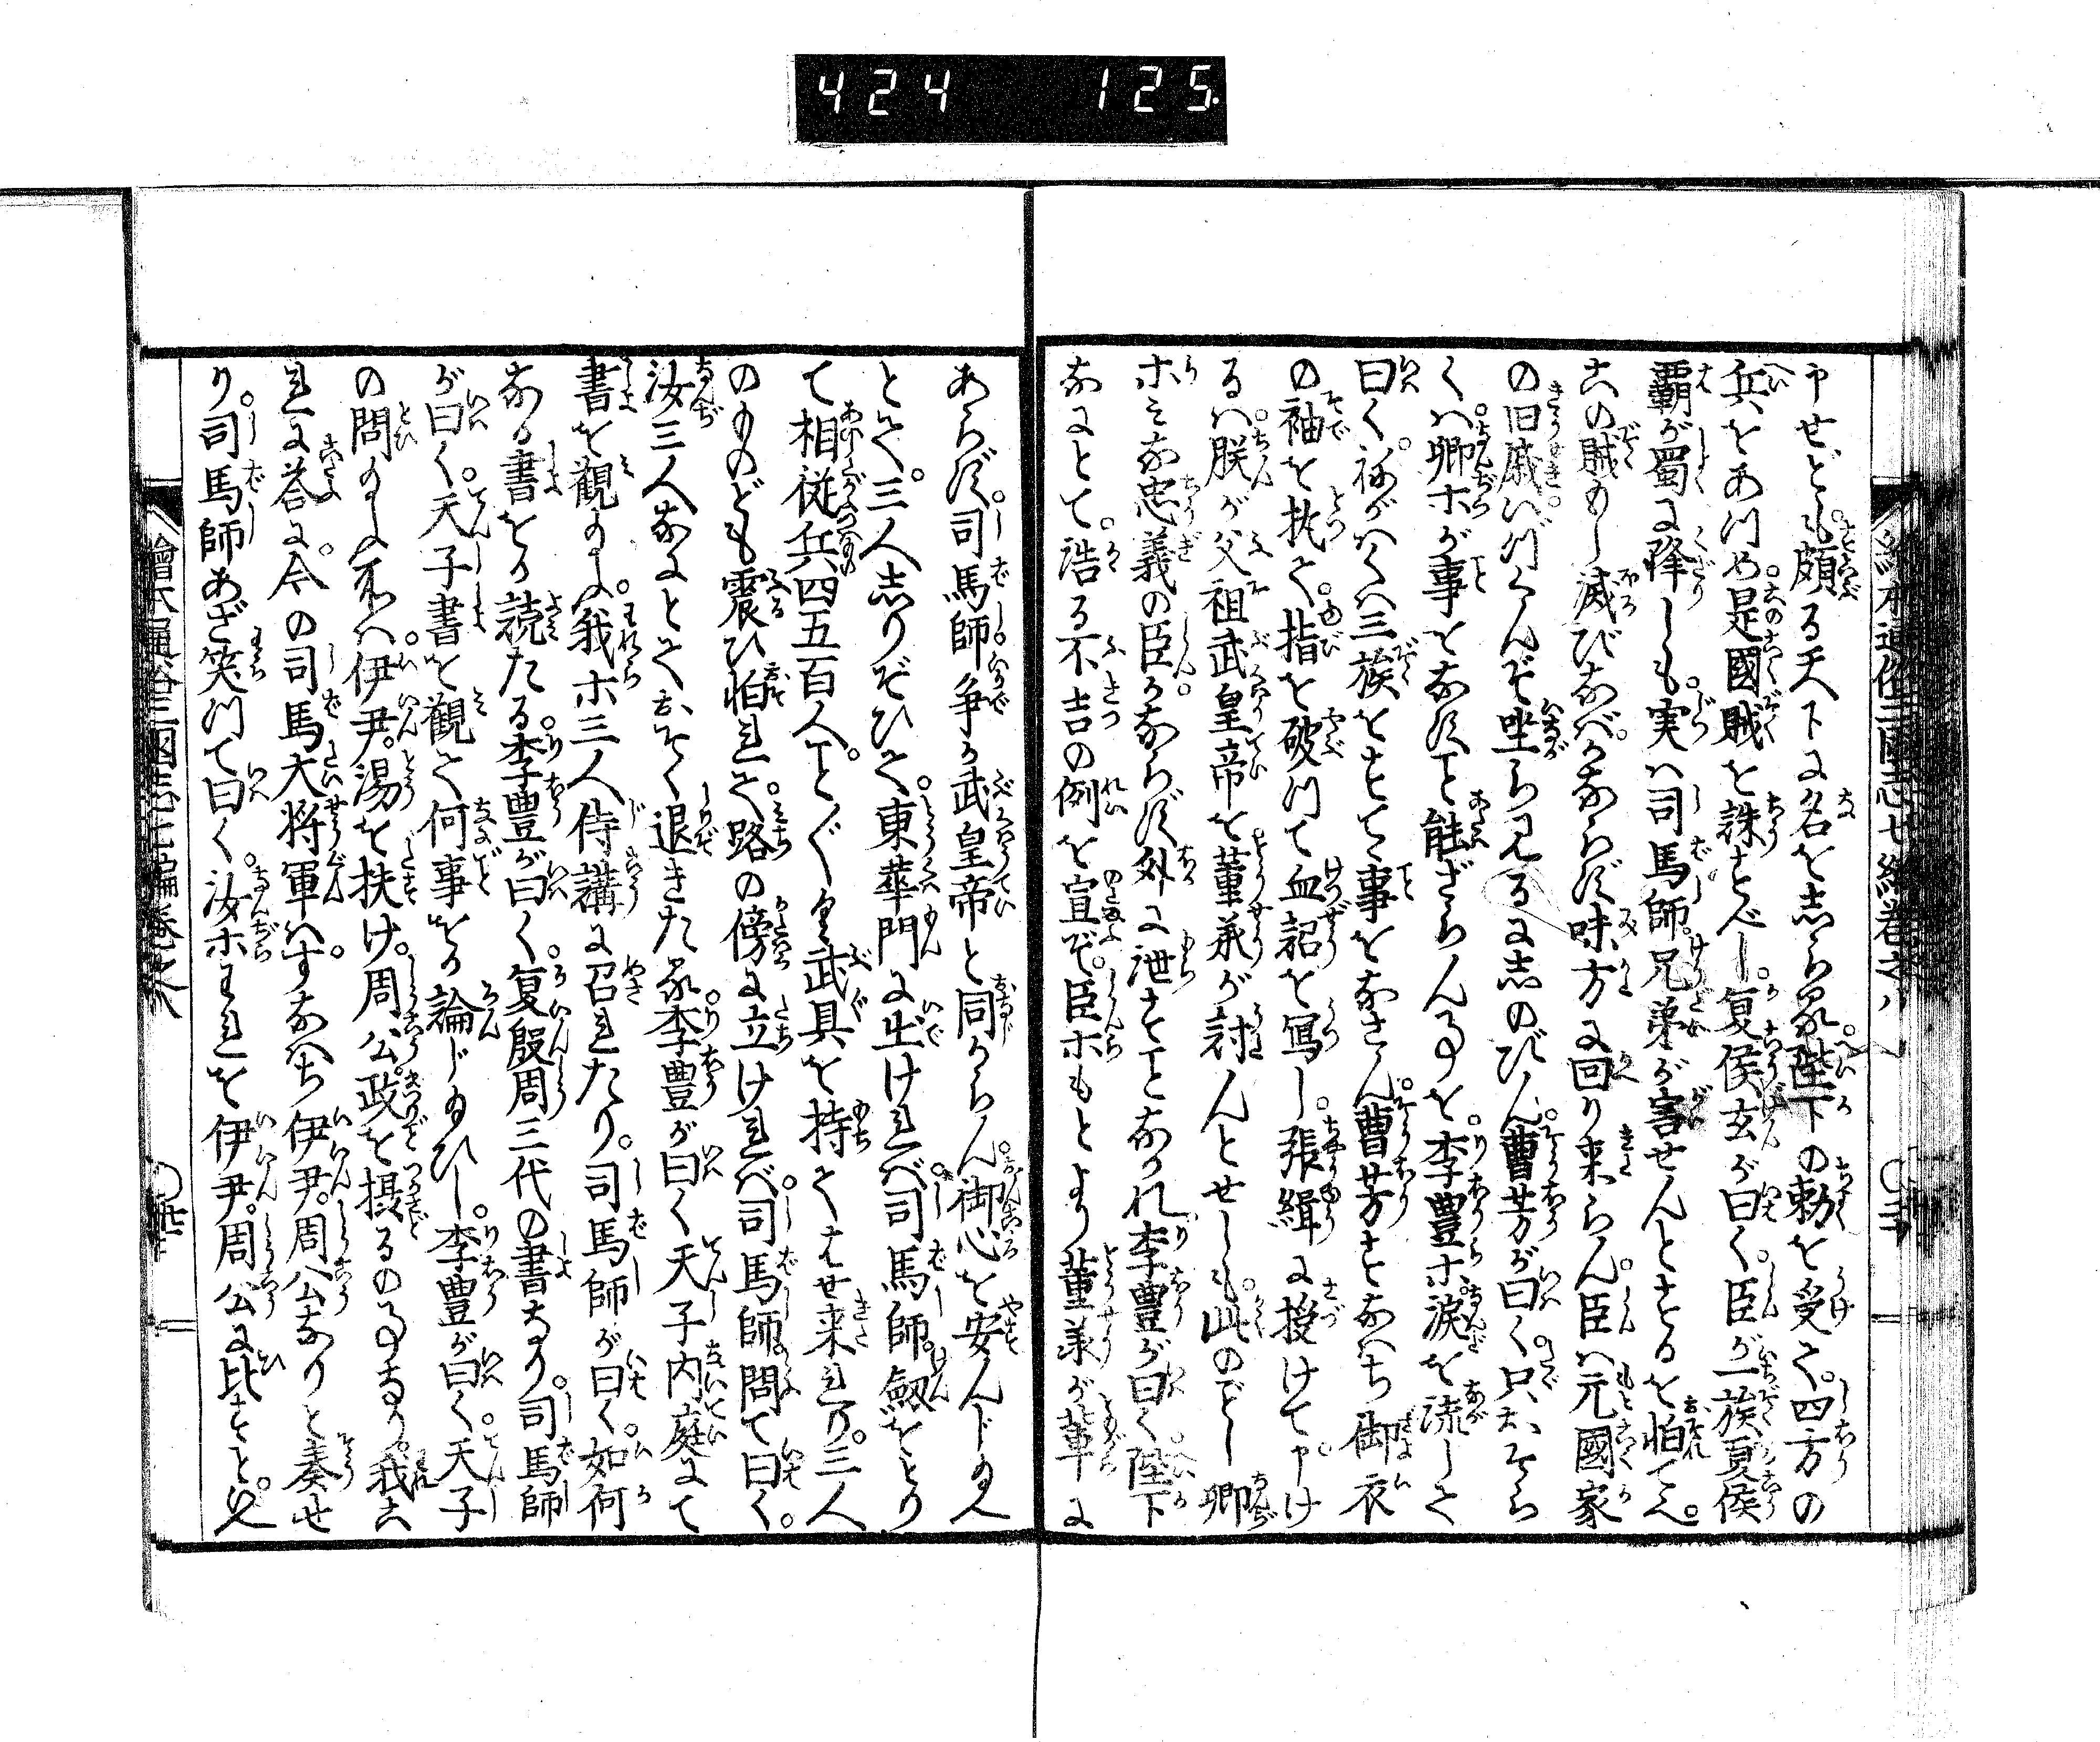 424 125
申せども。頗る天下に名をしられ。陛下の勅を受て。四方の
兵をあつめ。是國賊を誅すべし。夏侯玄が曰く。臣が一族夏侯
覇が蜀に降しも。実ハ司馬師。兄弟が害せんとするを怕てん。
この賊もし滅びなバ。かならず味方に回り来らん。臣ハ元國家
の旧戚。いづくんぞ坐ら見るに忍のびん。曹芳が曰く。只おそら
くハ。卿ホが事をなすこと能ざらんるを。李豊ホ。涙を流して
曰く。称がハくハ三族をすてて事をなさん。曹芳すなハち御衣
の袖を扯て。指を破つて血詔を写し。張緝に授けて。申け
るハ。朕が父祖武皇帝を董承が討んとせしも。此のごとし卿
ホミな忠義の臣かならず外に泄すことなかれ李豊が曰く。陛下
なにとて。浩る不吉の例を宣ぞ。臣ホもとより董承が輩に
あらず。司馬師。争か武皇帝と同からん。御心を安んじ玉へ
とて。三人志りぞひて。東華門に出けれバ。司馬師。劔をとり
て相従兵四五百人。ことごとく武具を持てはせ来れり。三人
のものども震ひ怕れて。路の傍に立けれバ。司馬師。問て曰く。
汝三人なにとておそく退きたる。李豊が曰く天子内庭にて
書を観玉ふ。我ホ三人侍講に召れたり。司馬師が曰く。如何
なる書をか読たる。李豊が曰く。夏殷周三代の書なり。司馬師
が曰く。天子書を観て何事をか論じ玉ひし。李豊が曰く。天子
の問玉ふ所ハ。伊尹。湯を扶け。周公。政を摂るの事なり。我こ
れに答に。今の司馬大将軍ハ。すなハち伊尹。周公なりと奏せ
り。司馬師あざ笑つて曰く。汝ホわれを伊尹。周公に比すと。